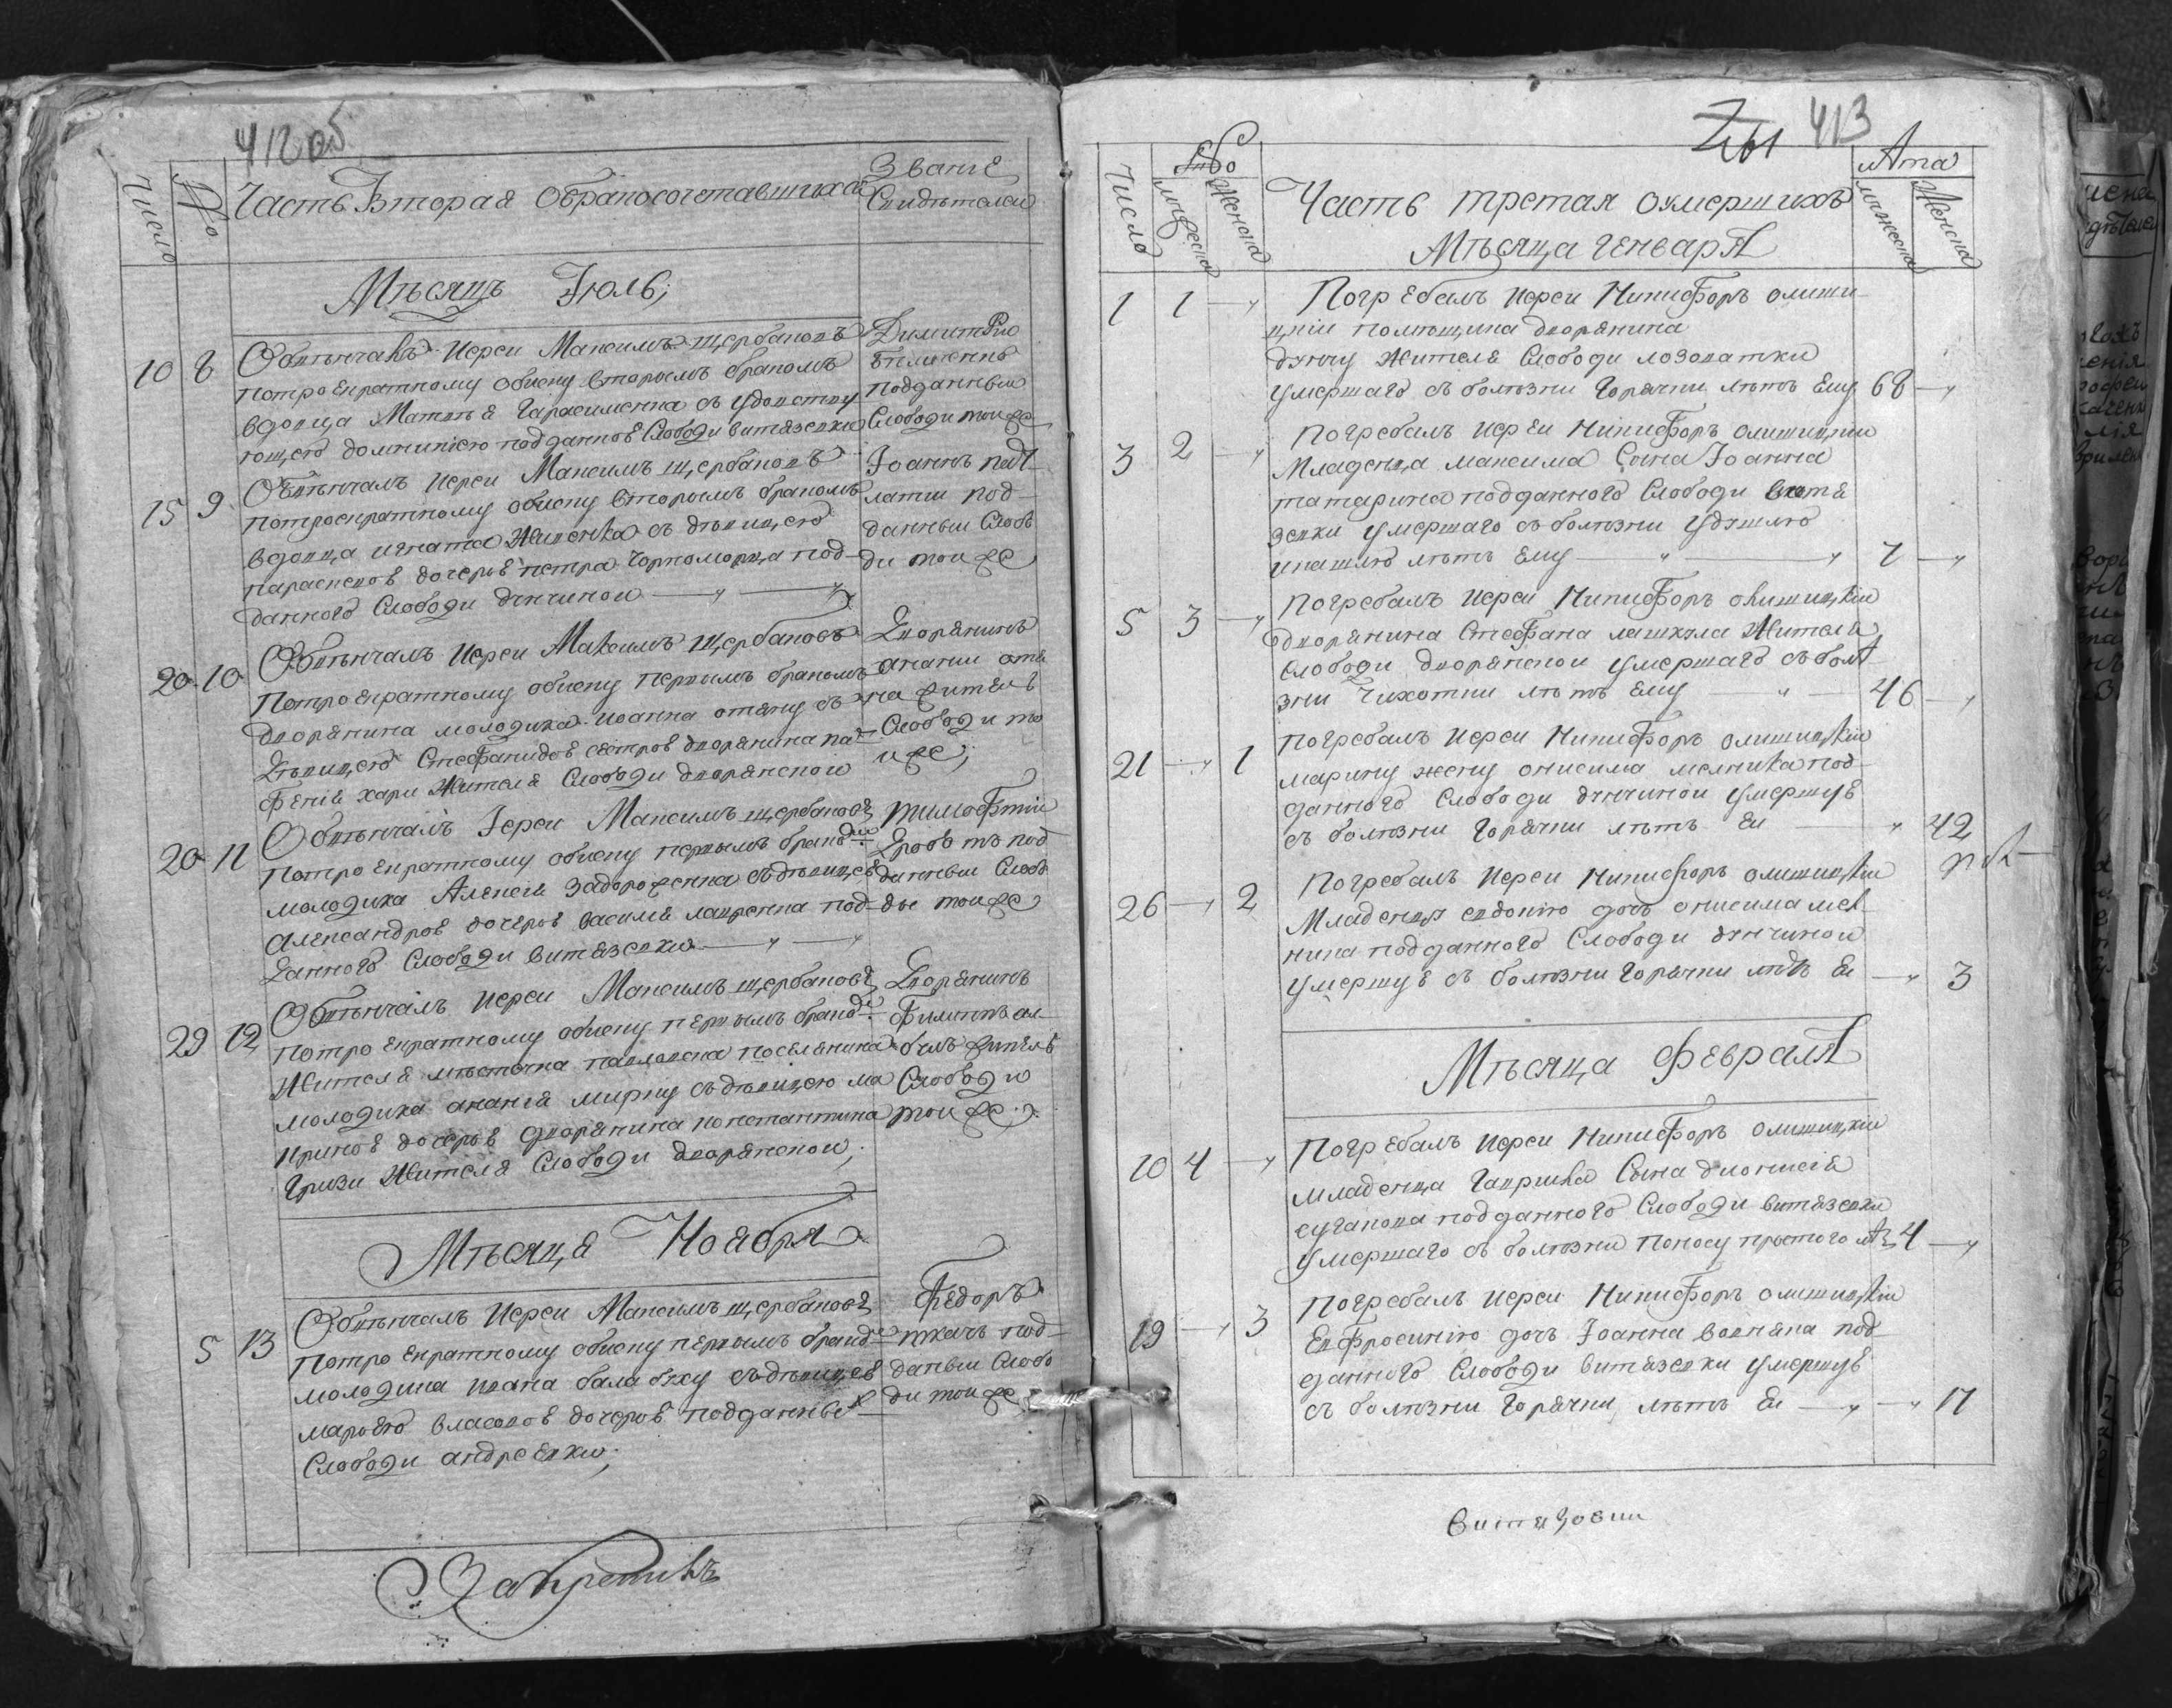 412 об
Число
№
Часть Вторая обракосочетавшихся
Звание
Свидетелей
Мѣсяцъ Июль;
10 8
Обвѣнчалъ Иереи Максимъ Щербаковъ
потроекратному обыску вторымъ бракомъ
вдовца Матвѣя Гарасименка съ удовству
ющею домникїею подданнов Слободи витязевки
Димитрїи
подданныи
Слободи тоиже
15 9
Обвѣнчалъ Иереи Максимъ Щербаковъ
потроекратному обыску вторымъ бракомъ
вдовца игната съ дѣвицею
параскевов дочерьв петра Чорноморца под-
данного Слободи дячинои
Іоаннъ
под-
данныи Слобо
ди тоиже
20 10
Обвѣнчалъ Иереи Максимъ Щербаковъ
потроекратному обыску первымъ бракомъ
дворянина молодика иоанна съ
дѣвицею Стефанидов сестров дворянина пар-
фенїя хари Жителя Слободи дворянскои
Дворянинъ
ананїи
жители
Слободи то
иже;
20 11
Обвѣнчалъ Іереи Максимъ щербаковъ
потроекратному обыску первымъ бракомъ
молодика Алексїя Задороженка съдѣвицев
Александров дочеров василя лавренка под-
данного Слободи витязевки
тимофтїи
под
данныи Слобо
ды тоиже
29 12
Обвѣнчалъ Иереи Максимъ щербаковъ
потроекратному обыску первымъ бракомъ
Жителя мѣстечка павловска поселянина
молодика ананїя мирну съдѣвицею ма
иринов дочеров дворянина константина
Гризи Жителя Слободи дворянскои;
Дворянинъ
Филиппъ
житель
Слободи
тоиже
Мѣсяця Ноября
5 13
Обвѣнчалъ Иереи Максимъ щербаковъ
потроекратному обыску первымъ бракомъ
молодика ивана балабуху съдѣвицев
марьею власовов дочеров подданные
Слободи андреевки;
Федоръ
ткачъ под-
даныи Слобо
ди тоиже
413
Число
№
мужеска
Женска
Часть третая оумершихъ
Мѣсяца Генваря
Лѣта
мужеска
Женска
1 1
Погребалъ Иереи Никифоръ олшевс-
цкїи помѣщика дворянина
Жителя Слободи лозоватки
умершаго съ болѣзни Горячки лѣтъ Ему 68
3 2
Погребалъ иереи Никифоръ
Младенца максима Сына Іоанна
татарина подданного Слободи витя
зевки умершаго съ болѣзни удушлю
икашлю лѣтъ Ему 7
5 3
Погребалъ иереи Никифоръ
дворянина Стефана Жителя
слободи дворянскои умершаго съ болѣ
зни Чихотки лѣтъ Ему 46
21 1
погребалъ иереи Никифоръ
марину жену онисима мелника под-
данного Слободи дячинои умершув
съ болѣзни Горячки лѣтъ Еи 42
26 2
Погребалъ Иереи Никифоръ
Младенця евдокїю дочь онисима мел-
ника подданного Слободи дячинои
умершув съ болѣзни Горячки лѣтъ Еи 3
Мѣсяца Февраля
10 4
Погребалъ Иереи Никифоръ
младенца Гавриила Сына дионисїя
сугакова подданного Слободи витязевки
умершаго съ болѣзни поносу простого лѣт 4
19 3
Погребалъ Иереи Никифоръ
Ефросинїю дочь Іоанна вовняна под-
данного Слободи витязевки умершув
съ болѣзни Горячки лѣтъ Еи 17
витязовки